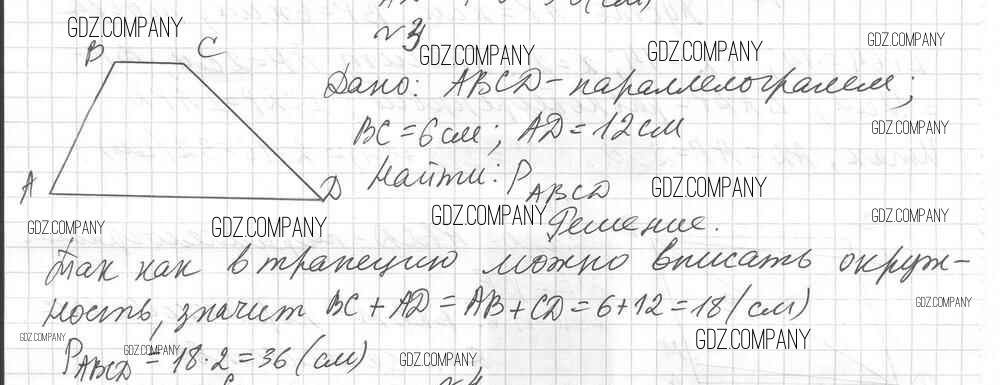 №3
GDZ.COMPANY GDZ.COMPANY GDZ.COMPANY GDZ.COMPANY
B C
Дано: ABCD - параллелограмм;
BC = 6 см; AD = 12 см
GDZ.COMPANY
Найти: P ABCD
A D
GDZ.COMPANY GDZ.COMPANY GDZ.COMPANY GDZ.COMPANY GDZ.COMPANY
Решение.
Так как в трапецию можно вписать окруж-
ность, значит BC + AD = AB + CD = 6 + 12 = 18 (см)
GDZ.COMPANY GDZ.COMPANY GDZ.COMPANY
P ABCD = 18 · 2 = 36 (см)
GDZ.COMPANY GDZ.COMPANY